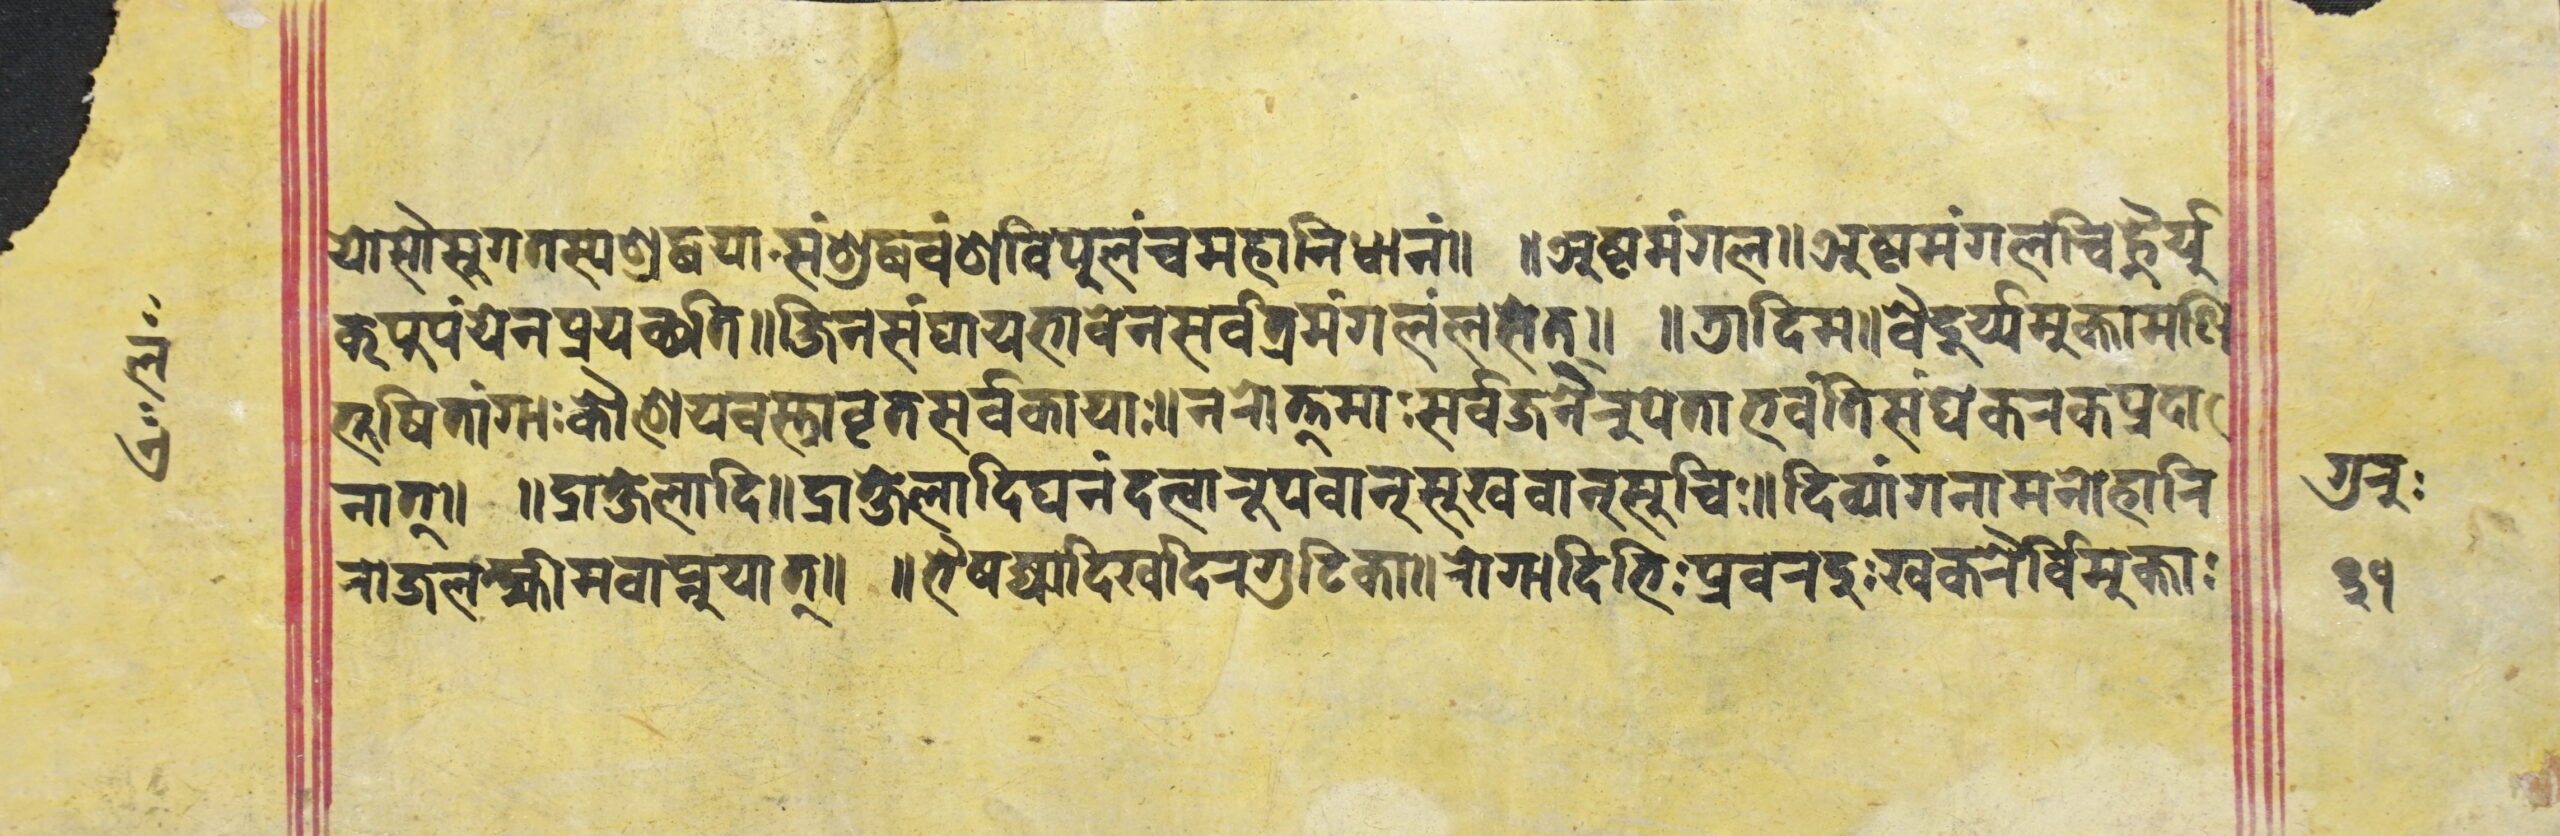 योसौसुगतस्पश्रद्धया॰संशुद्धवंशविपुलंचमहानिधानं॥ ॥अष्टमंगल॥अष्टमंगलचिह्नैर्यु
क्पुपंयेनप्रयच्छति॥जिनसंघायभावेनसर्वत्रमंगलंलभेत्॥ ॥तादिम॥वैदुर्य्यमुक्तामणि
भुषितांगाःकौशेयवस्त्रावृतसर्वकायाः॥नरोत्त्माःसर्वजनैरुपेताभवंतिसंघेकनकप्रदा
नात्॥ ॥द्राक्षेलादि॥द्राक्षेलादिघनंदत्वारूपवान्सुखवान्सुचिः॥दिव्यांगनामनोहारि
राजलक्ष्मीमवाप्नुयात्॥ ॥भैषज्यादिखदिरगुटिका॥रोगादिभिःप्रवरदुःखकरैर्विमुक्ताः
गुरुः
३१